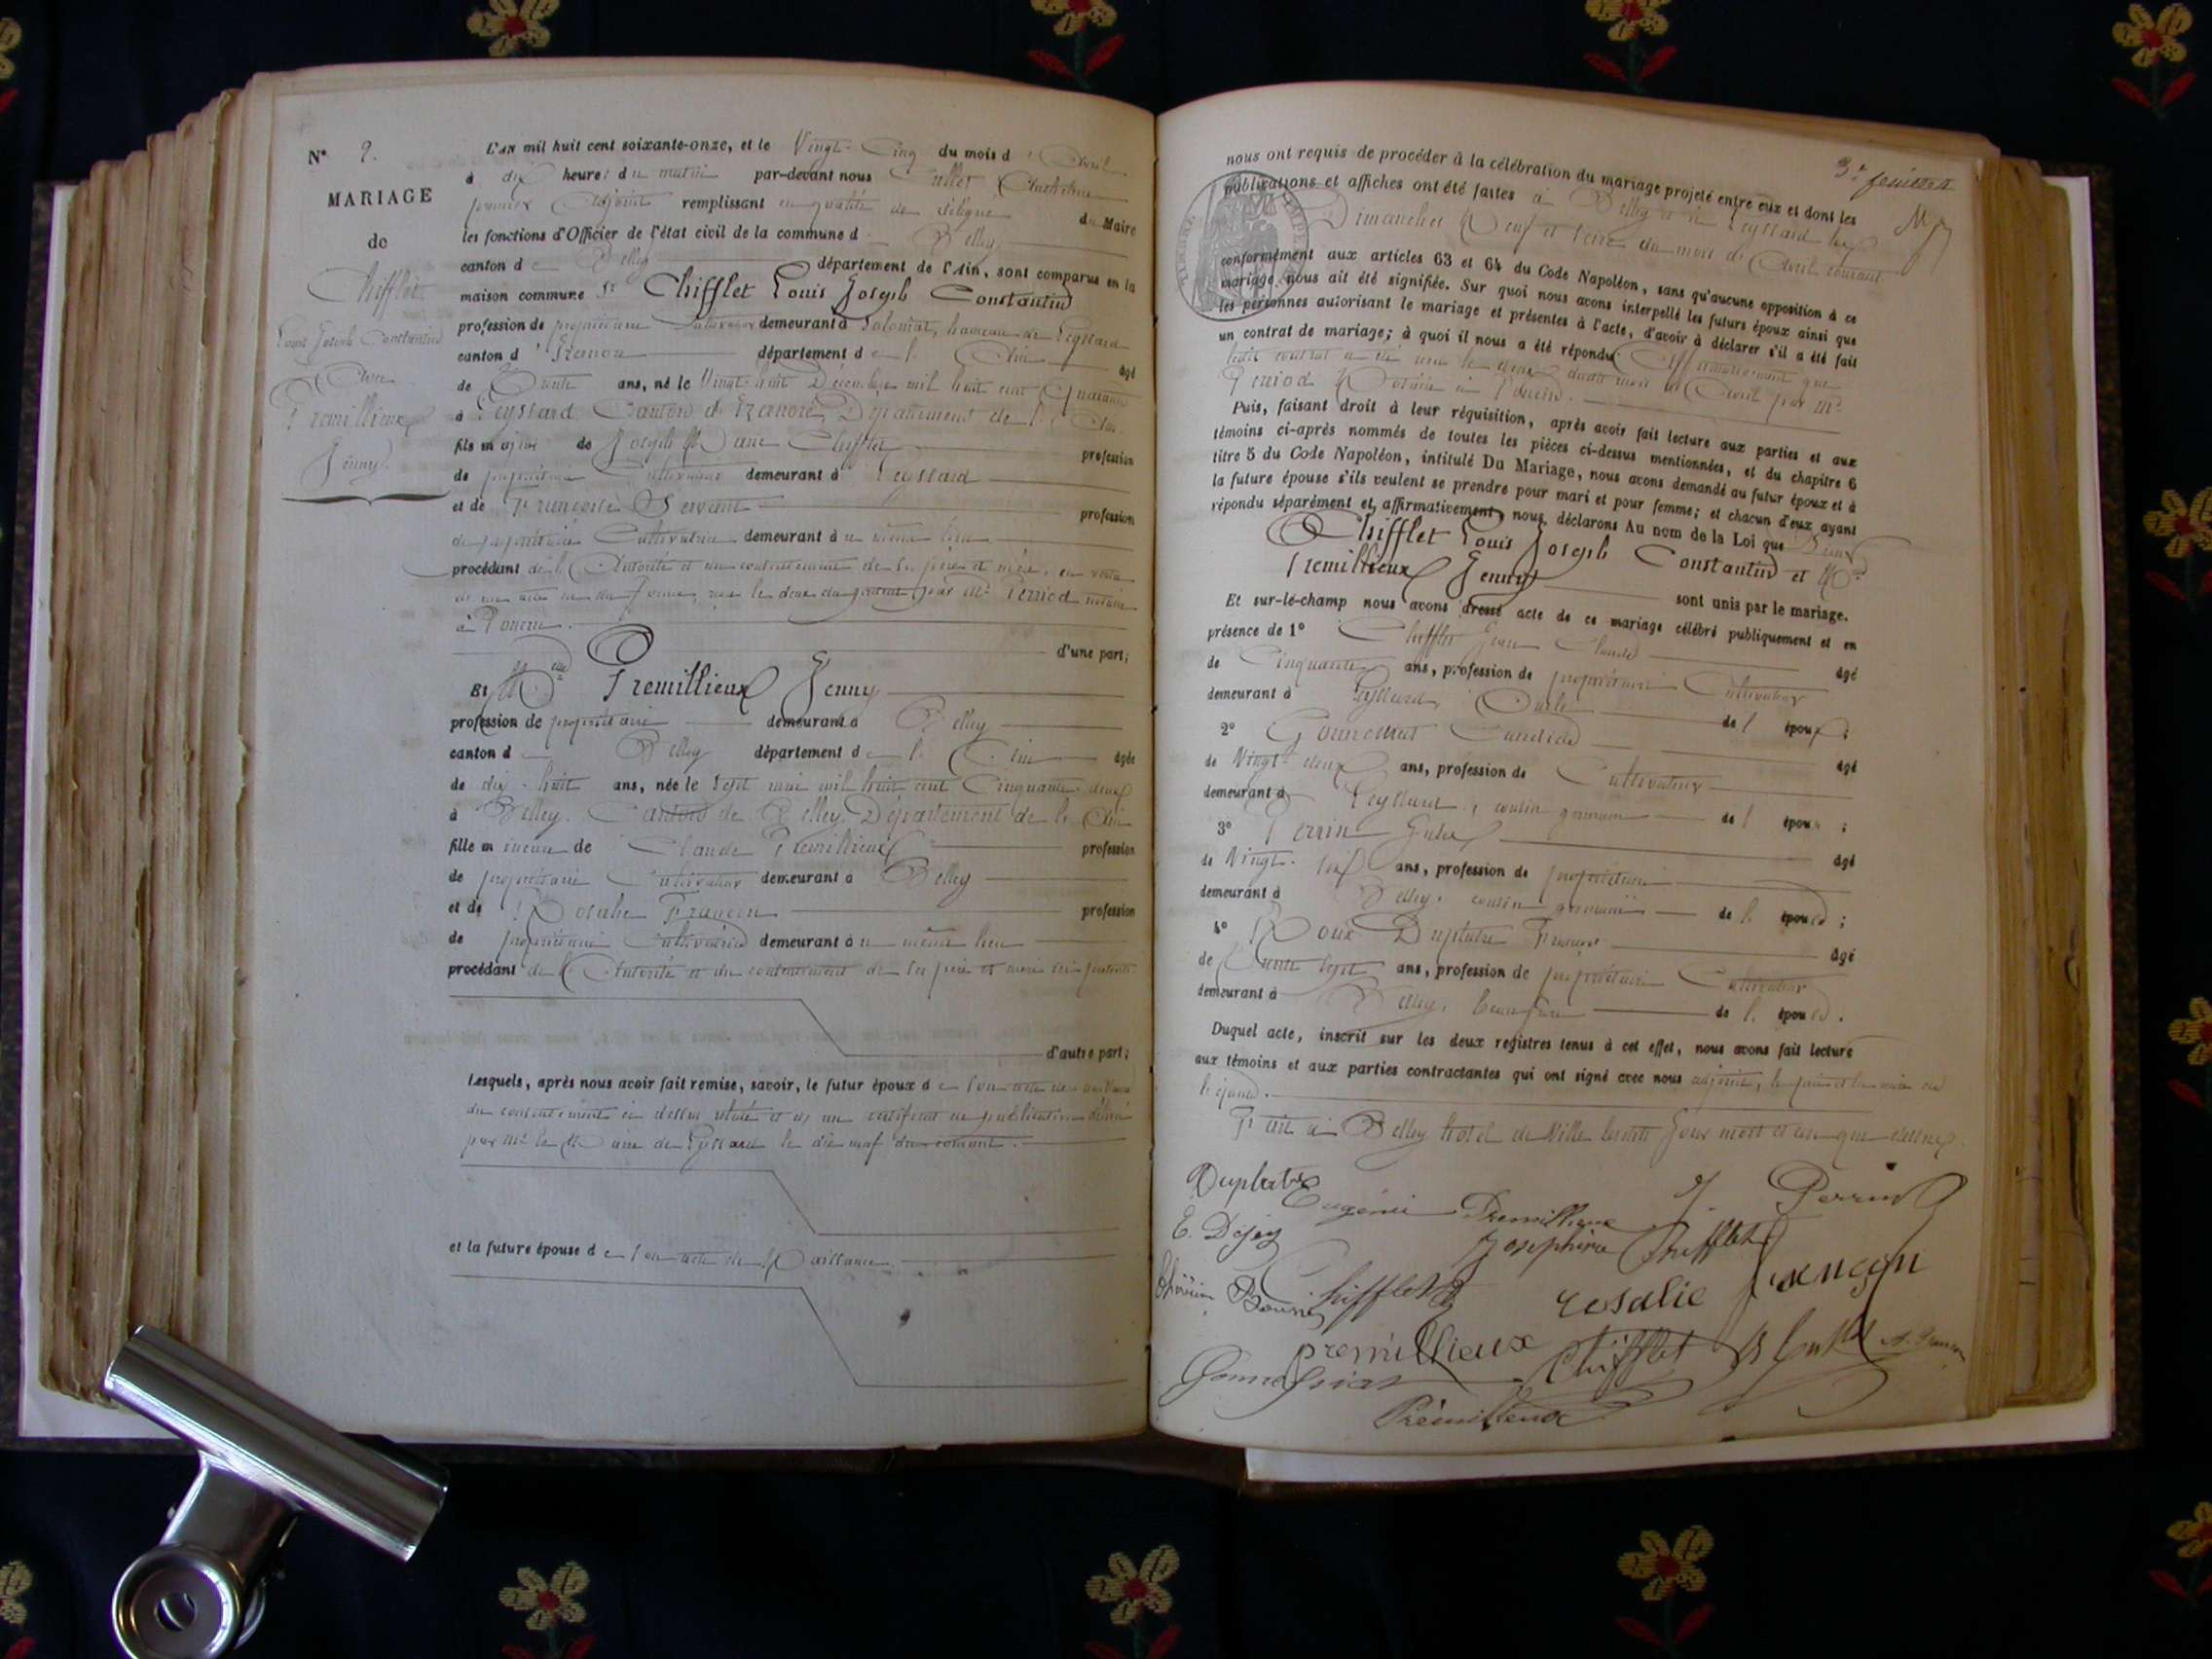 N° 9.
MARIAGE
de
Chifflet
Louis Joseph Constantin
Avec
Premillieux
Jenny
L'an mil huit cent soixante-onze, et le Vingt-Cinq du mois d'Avril
à dix heures du matin par-devant nous
premier Adjoint remplissant en qualité de délégué du Maire
les fonctions d'Officier de l'état civil de la commune de Belley
canton de Belley département de l'Ain, sont comparus en la
maison commune Sr Chifflet Louis Joseph Constantin
profession de propriétaire Cultivateur demeurant à Solomiat, hameau de Leyssard
canton d'Izenore département de l'Ain âgé
de Trente ans, né le Vingt-huit Décembre mil huit cent Quarante
à Leyssard Canton d'Izenore, Département de l'Ain
fils majeur de Joseph Marie Chifflet profession
de propriétaire Cultivateur demeurant à Leyssard
et de Françoise Servant profession
de propriétaire Cultivatrice demeurant au même lieu
procédant de l'Autorité et du consentement de ses père et mère, en vertu
par Me Perriod notaire
à Poncin.
d'une part;
Et Mlle Premillieux Jenny
profession de propriétaire demeurant à Belley
canton de Belley département de l'Ain âgée
de dix-huit ans, née le Sept mai mil huit cent Cinquante-deux
à Belley. Canton de Belley, Département de l'Ain
fille mineure de Claude Premillieux profession
de propriétaire Cultivateur demeurant à Belley
et de Rosalie Françon profession
de propriétaire Cultivatrice demeurant au même lieu
procédant de l'Autorité et du consentement de ses père et mère ici présents
d'autre part;
Lesquels, après nous avoir fait remise, savoir, le futur époux de son acte de naissance
du consentement ci dessus relaté et d'un certificat de publication délivré
par Mr le Maire de Leyssard le dix neuf du courant.
et la future épouse de son acte de Naissance.
3e feuillet
nous ont requis de procéder à la célébration du mariage projeté entre eux et dont les
publications et affiches ont été faites à Belley et à Leyssard les
Dimanches Neuf et Seize du mois d'Avril courant
conformément aux articles 63 et 64 du Code Napoléon, sans qu'aucune opposition à ce
mariage nous ait été signifiée. Sur quoi nous avons interpellé les futurs époux ainsi que
les personnes autorisant le mariage et présentes à l'acte, d'avoir à déclarer s'il a été fait
un contrat de mariage; à quoi il nous a été répondu Affirmativement que
leur contrat a été du mois d'Avril par Me
Perriod Notaire à Poncin.
Puis, faisant droit à leur réquisition, après avoir fait lecture aux parties et aux
témoins ci-après nommés de toutes les pièces ci-dessus mentionnées, et du chapitre 6
titre 5 du Code Napoléon, intitulé Du Mariage, nous avons demandé au futur époux et à
la future épouse s'ils veulent se prendre pour mari et pour femme; et chacun d'eux ayant
répondu séparément et affirmativement, nous déclarons Au nom de la Loi que
Chifflet Louis Joseph Constantin et Mlle
Premillieux Jenny sont unis par le mariage.
Et sur-le-champ nous avons dressé acte de ce mariage célébré publiquement et en
présence de 1° Chifflet Jean Claude âgé
de Cinquante ans, profession de propriétaire Cultivateur
demeurant à Leyssard, Oncle de l'époux;
2° Candide âgé
de Vingt-deux ans, profession de Cultivateur
demeurant à Leyssard, cousin germain de l'époux;
3° Perrin Jules âgé
de Vingt-six ans, profession de propriétaire
demeurant à Belley, cousin germain de l'épouse;
4° Roux Duplatre François âgé
de Trente Sept ans, profession de propriétaire Cultivateur
demeurant à Belley, beau frère de l'épouse.
Duquel acte, inscrit sur les deux registres tenus à cet effet, nous avons fait lecture
aux témoins et aux parties contractantes qui ont signé avec nous adjoint, le père et la mère de
l'épouse.
Fait à Belley hotel de Ville lesdits Jour mois et an que dessus.
Duplatre Eugénie Premillieux J. Perrin
E. Dejey Josephine Chifflet
Chifflet rosalie françon
premillieux Chifflet
Premillieux